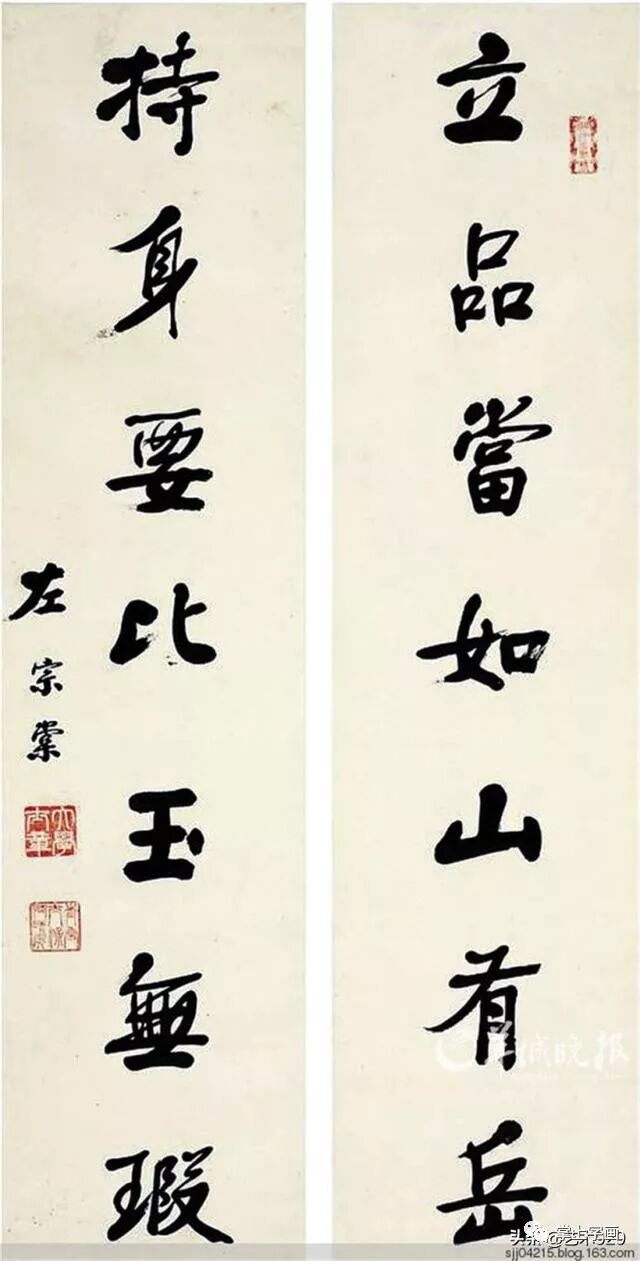 立品當如山有岳
持身要比玉無瑕
左宗棠
羊城晚报
掌上字画
sjj04215.blog.163.com